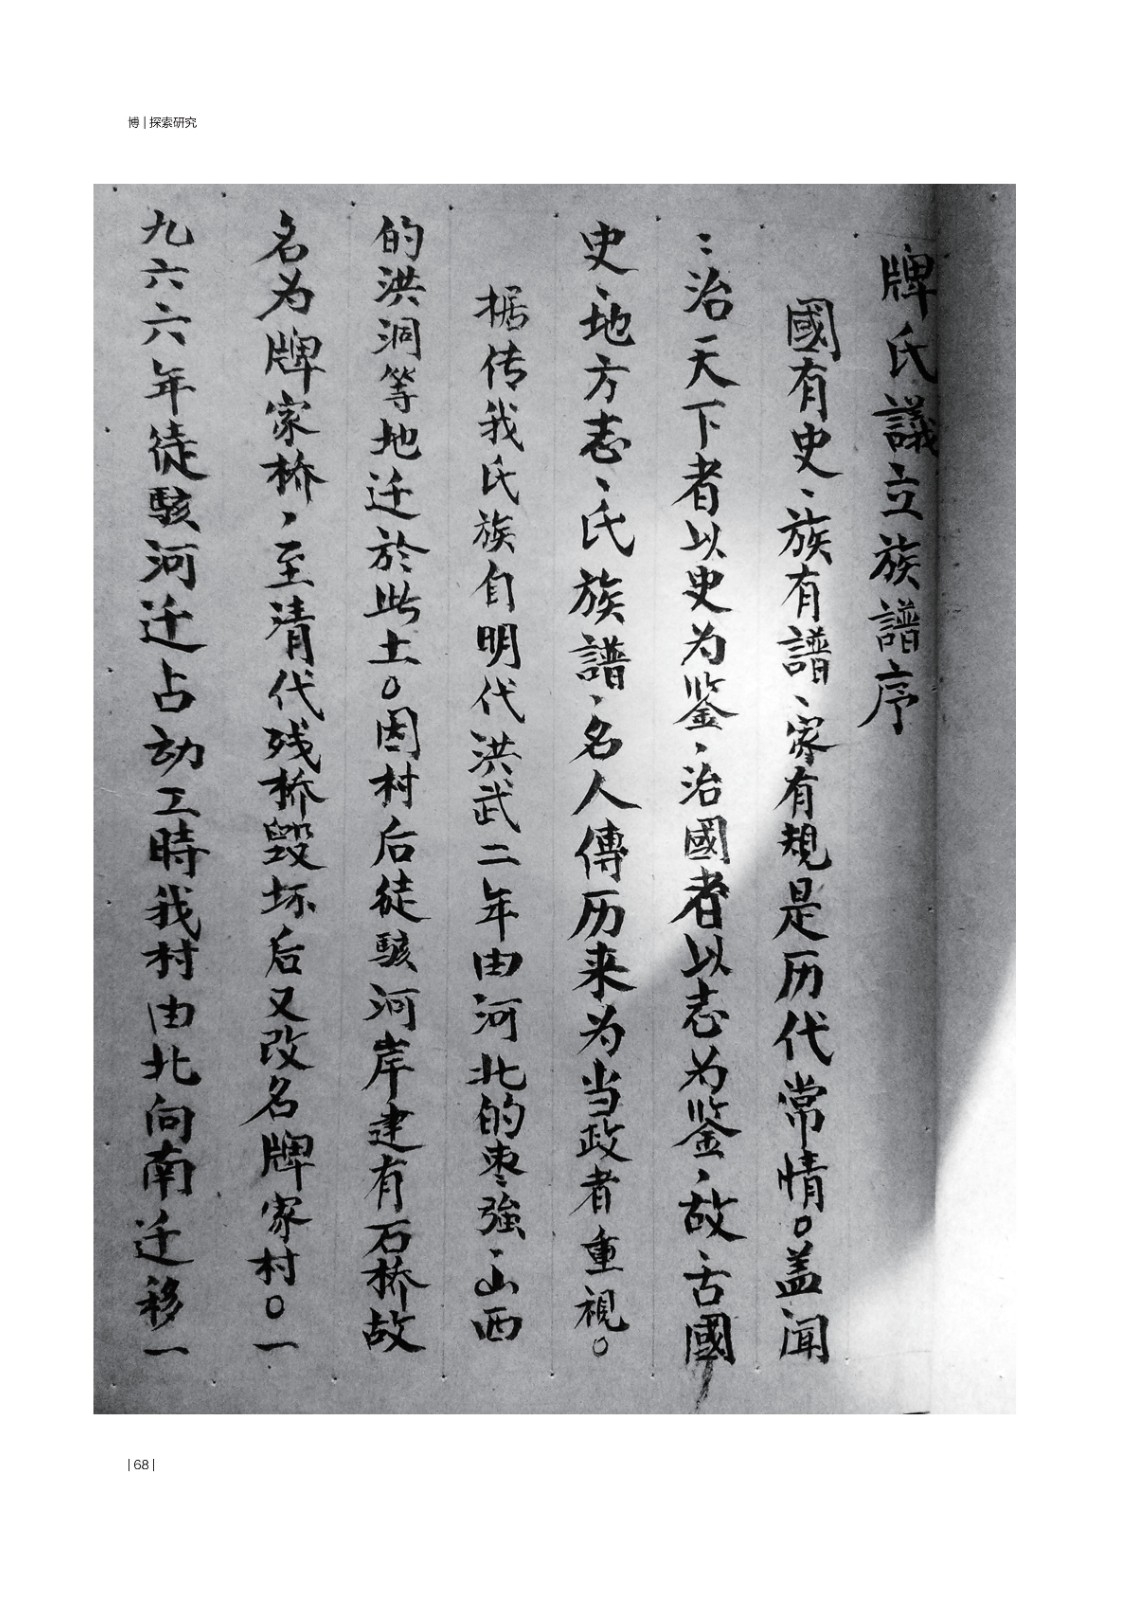 博 | 探索研究
牌氏議立族譜序
國有史、族有譜、家有規是历代常情。盖闻
：治天下者以史为鉴、治國者以志为鉴、故、古國
史、地方志、氏族譜、名人傳历来为当政者重視。
据传我氏族自明代洪武二年由河北的枣強、山西
的洪洞等地迁於此土。因村后徒駭河岸建有石桥故
名为牌家桥，至清代残桥毁坏后又改名牌家村。一
九六六年徒駭河迁占动工時我村由北向南迁移一
| 68 |